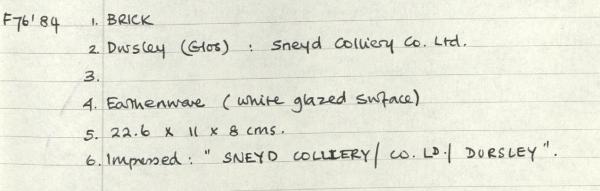 F76'84 1. BRICK
2. Dursley (Glos) : Sneyd Colliery Co. Ltd.
3.
4. Earthenware (white glazed surface)
5. 22.6 x 11 x 8 cms.
6. Impressed : " SNEYD COLLIERY/ CO. LD./ DURSLEY".